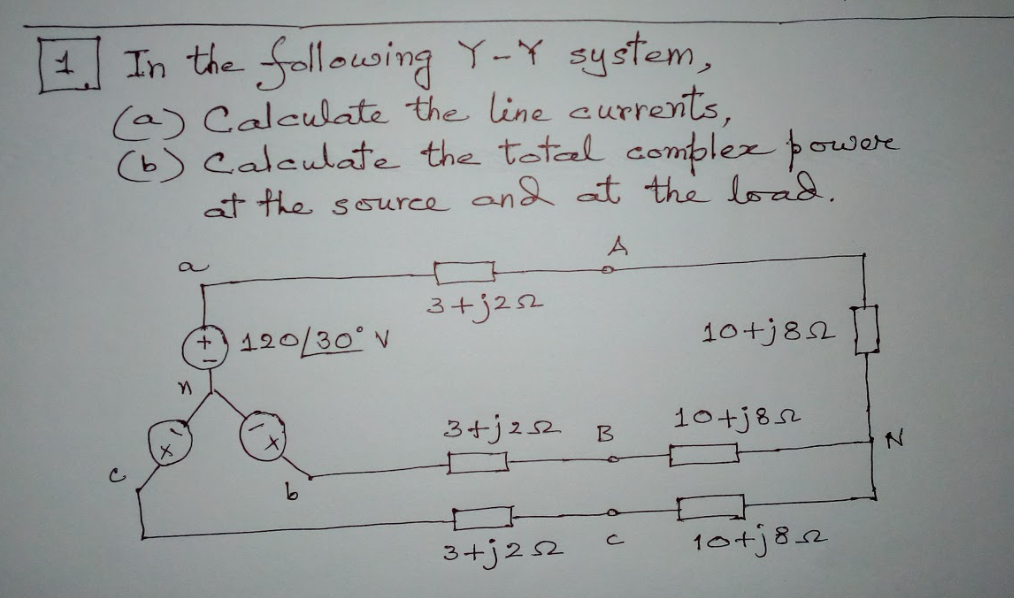 1. In the following Y-Y system,
(a) Calculate the line currents,
(b) Calculate the total complex power
at the source and at the load.
a
A
3+j2Ω
120/30° V
+
-
10+j8Ω
n
- +
- +
3+j2Ω B 10+j8Ω
N
c
b
3+j2Ω c 10+j8Ω